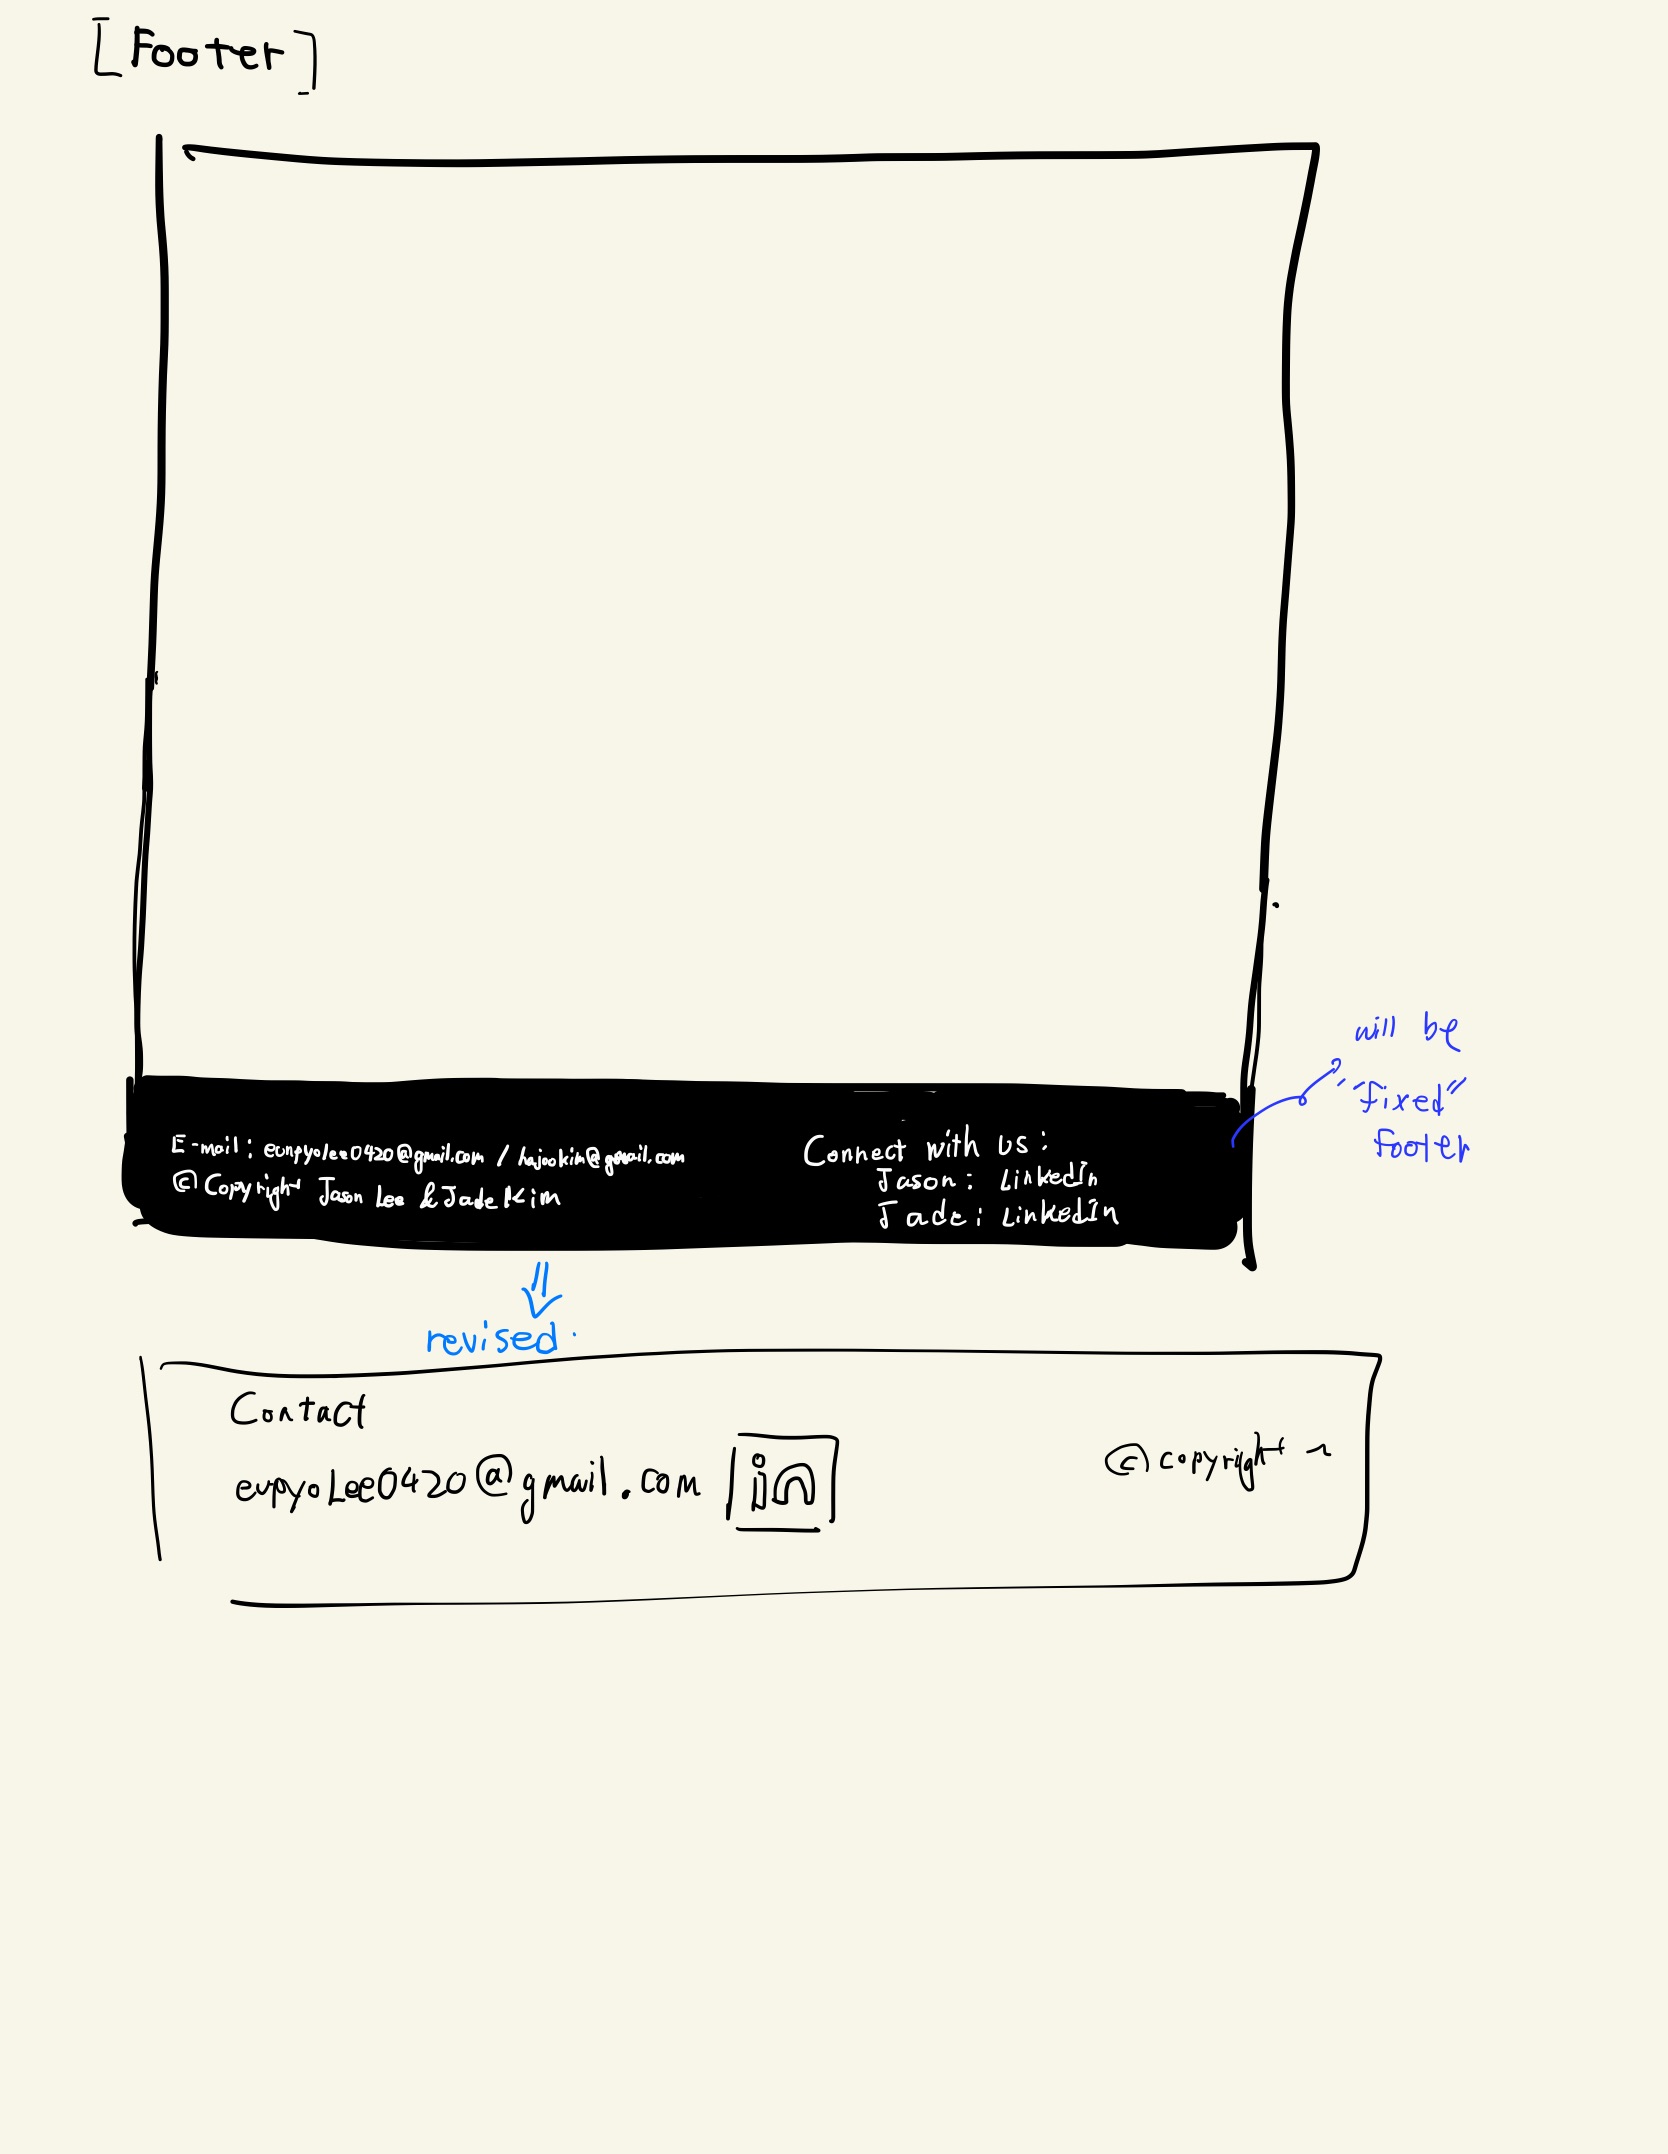 [Footer]
will be
"fixed"
footer
E-mail: eunpyolee0420@gmail.com / hajookim@gmail.com
© Copyright Jason Lee & Jade Kim
Connect with us:
Jason: LinkedIn
Jade: LinkedIn
revised.
Contact
eupyoLee0420@gmail.com in
© copyright ~